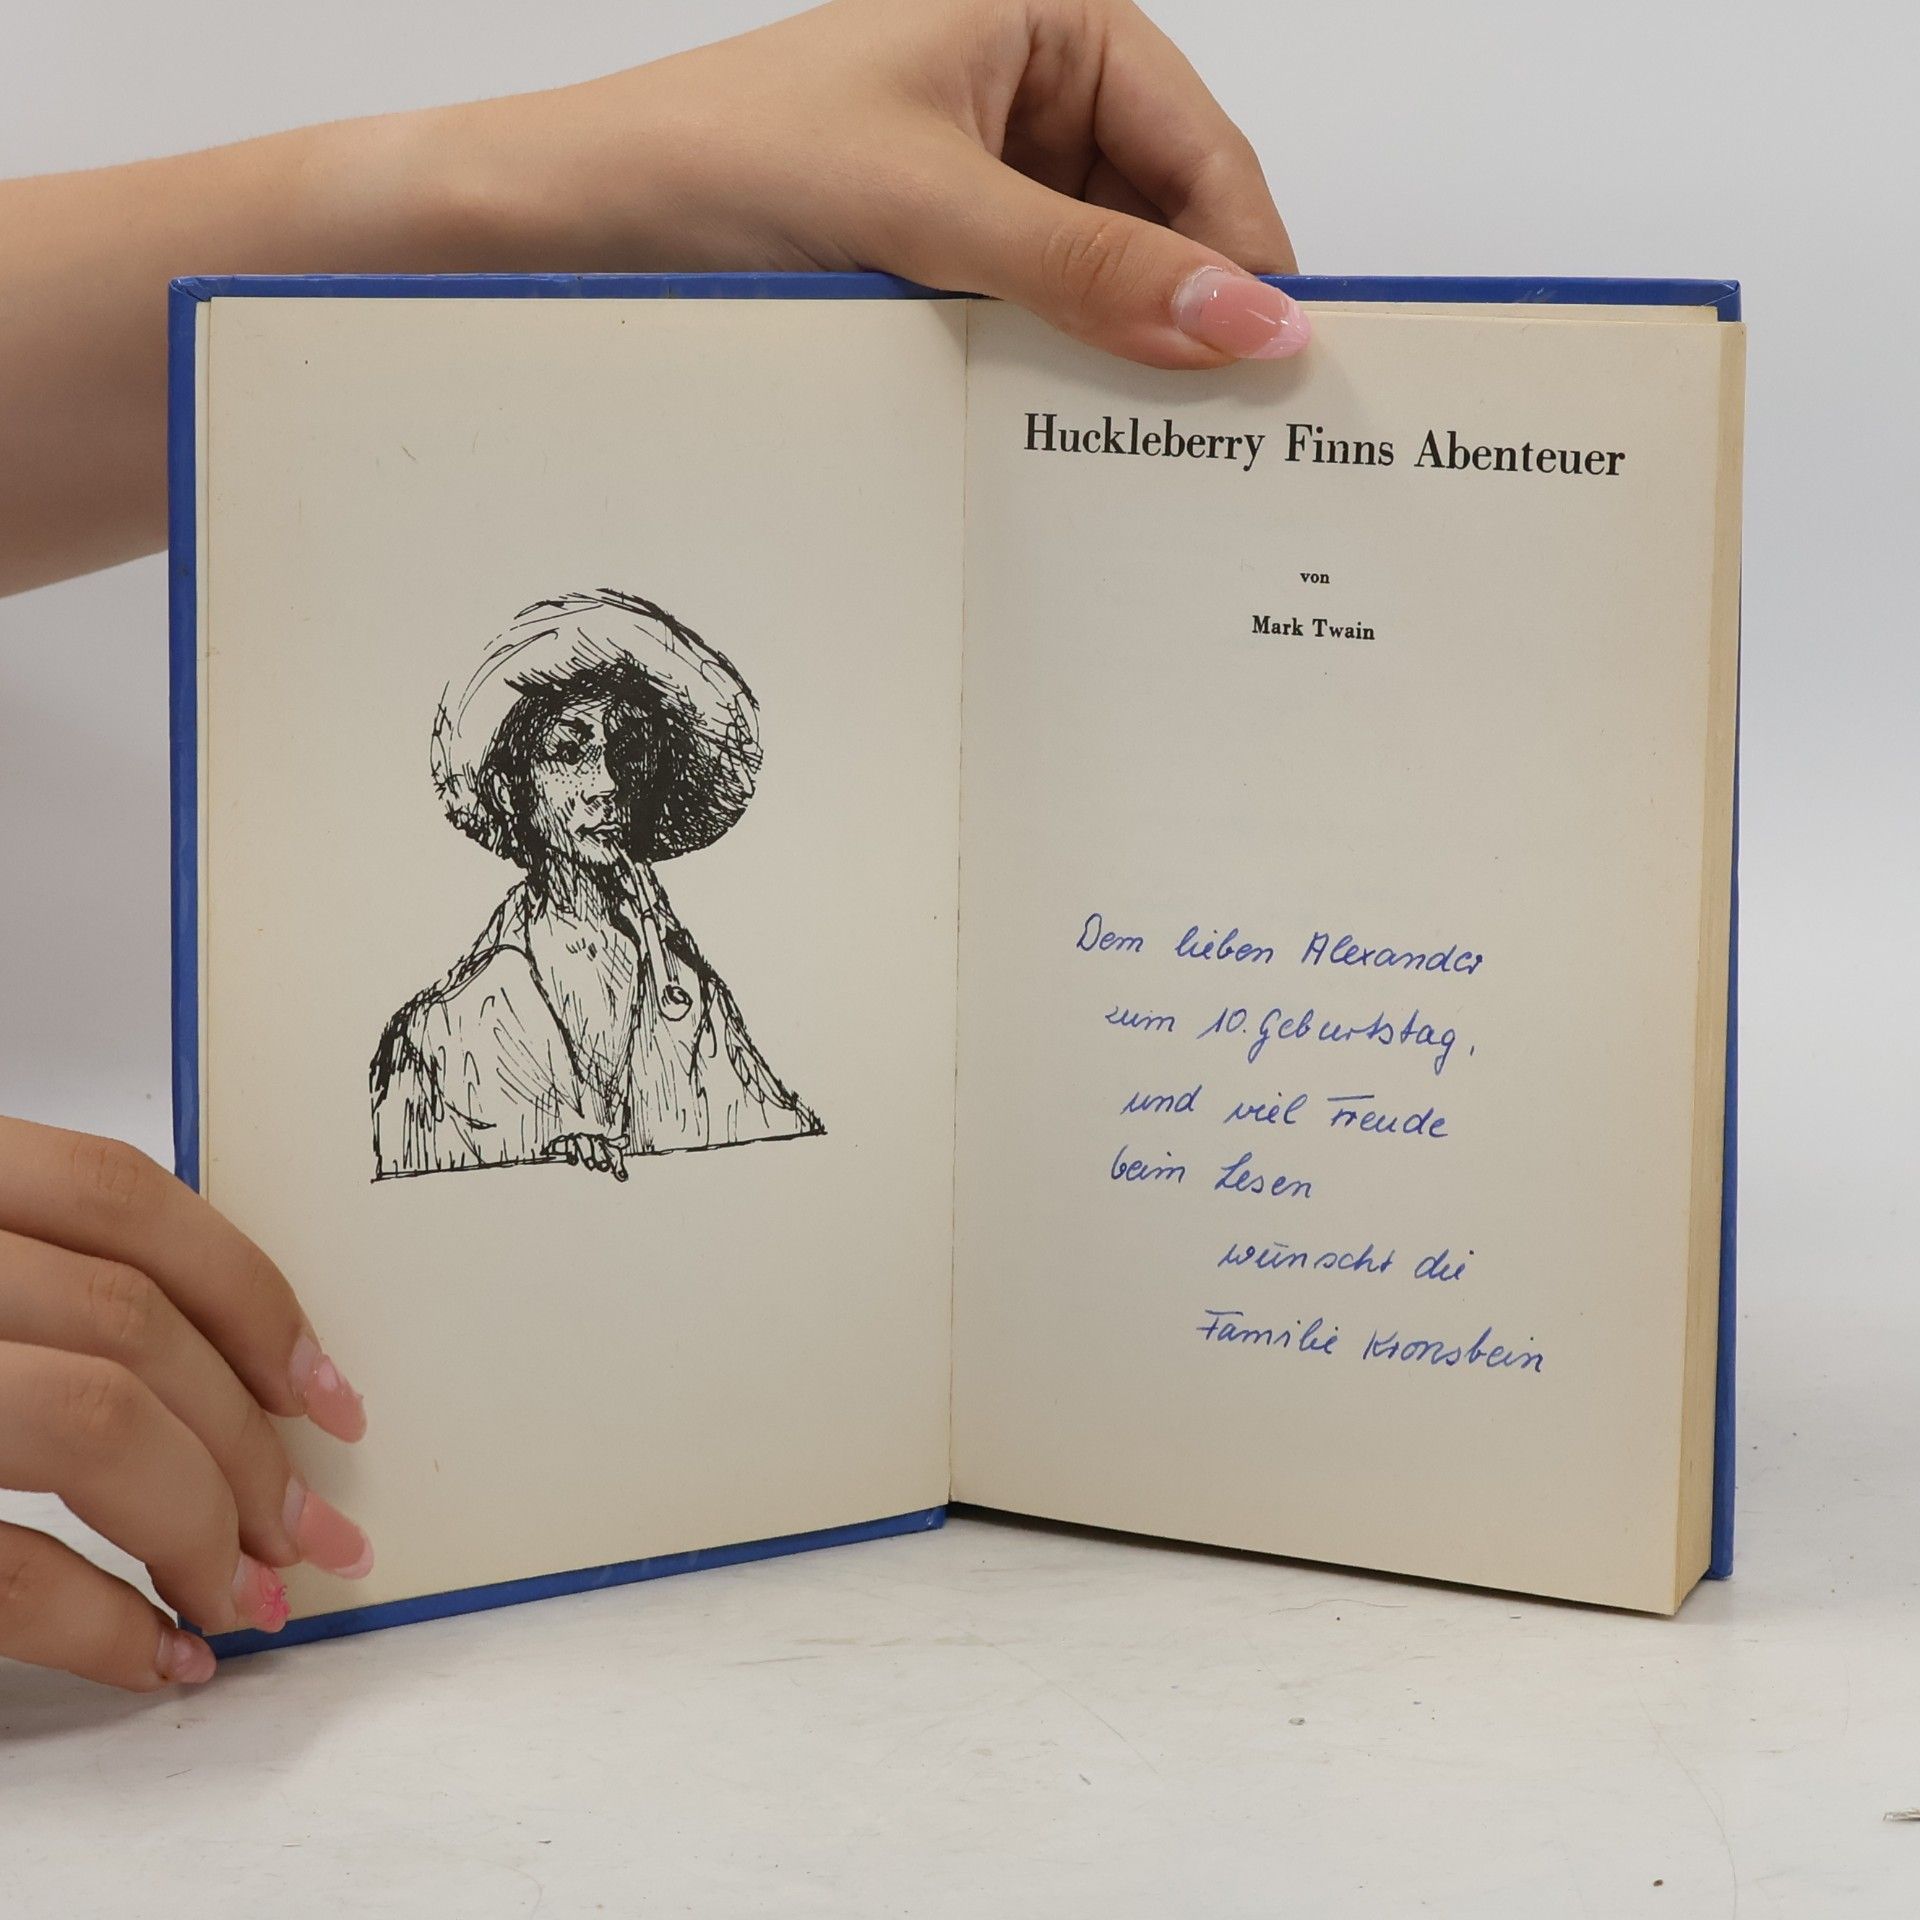 Huckleberry Finns Abenteuer
von
Mark Twain
Dem lieben Alexander
zum 10. Geburtstag,
und viel Freude
beim Lesen
wünscht die
Familie Kronsbein